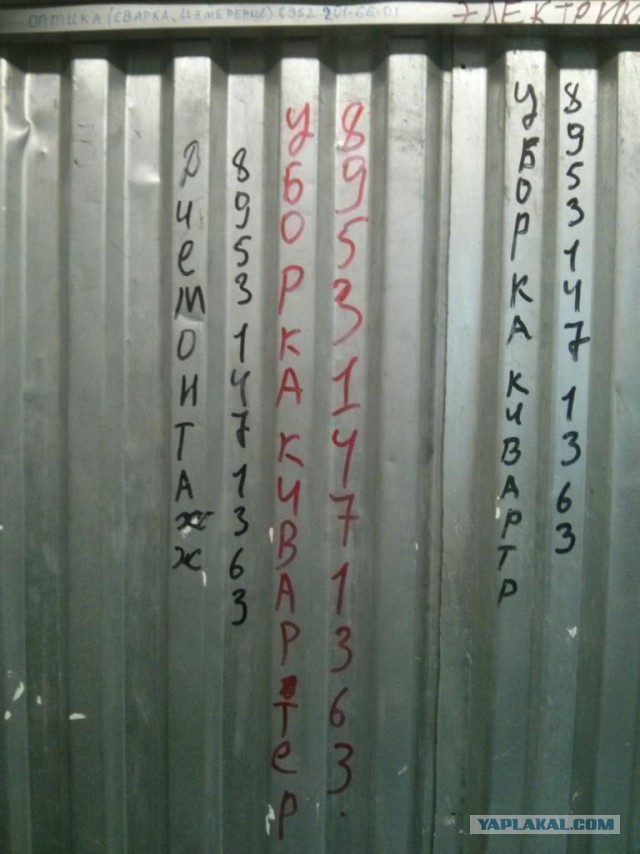 ОПТИКА (СВАРКА, ИЗМЕРЕНИЕ) 8952 201-66-01
ЭЛЕКТРИК
ДЧеmОНТАЖЖ
89531471363
УБОРКА КЧВАРТеР
89531471363
УБОРКА КЧВАРТР
89531471363
YAPLAKAL.COM